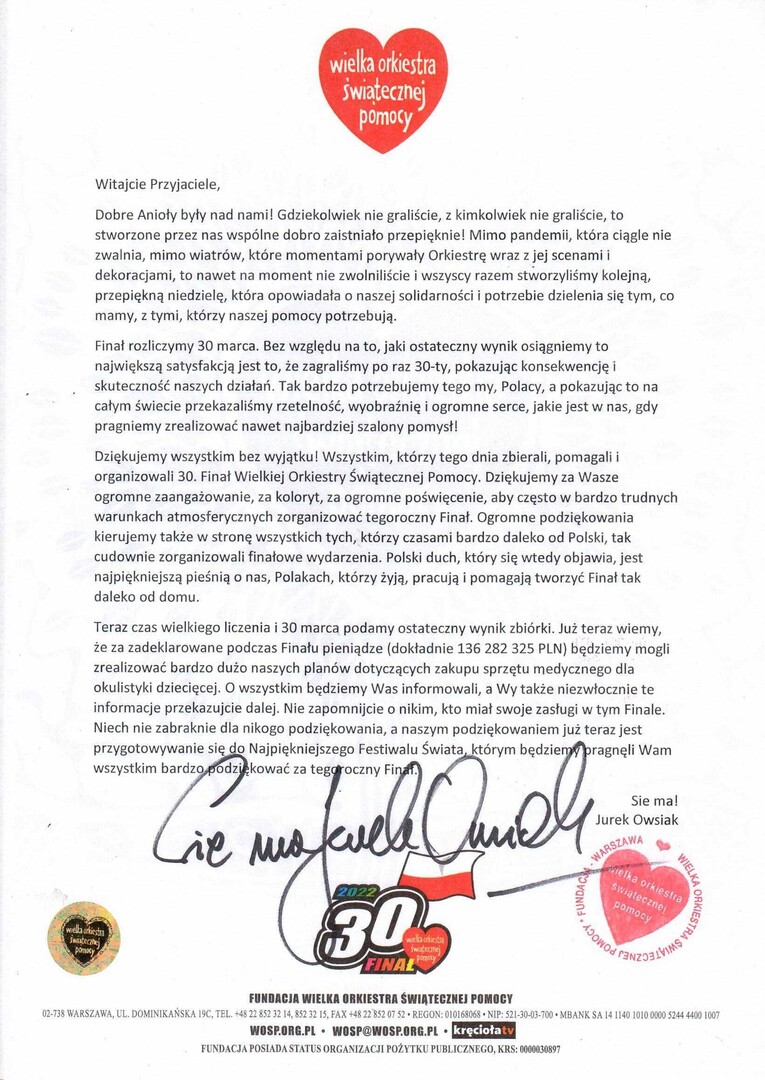 wielka orkiestra
świątecznej
pomocy
Witajcie Przyjaciele,
Dobre Anioły były nad nami! Gdziekolwiek nie graliście, z kimkolwiek nie graliście, to
stworzone przez nas wspólne dobro zaistniało przepięknie! Mimo pandemii, która ciągle nie
zwalnia, mimo wiatrów, które momentami porywały Orkiestrę wraz z jej scenami i
dekoracjami, to nawet na moment nie zwolniliście i wszyscy razem stworzyliśmy kolejną,
przepiękną niedzielę, która opowiadała o naszej solidarności i potrzebie dzielenia się tym, co
mamy, z tymi, którzy naszej pomocy potrzebują.
Finał rozliczymy 30 marca. Bez względu na to, jaki ostateczny wynik osiągniemy to
największą satysfakcją jest to, że zagraliśmy po raz 30-ty, pokazując konsekwencję i
skuteczność naszych działań. Tak bardzo potrzebujemy tego my, Polacy, a pokazując to na
całym świecie przekazaliśmy rzetelność, wyobraźnię i ogromne serce, jakie jest w nas, gdy
pragniemy zrealizować nawet najbardziej szalony pomysł!
Dziękujemy wszystkim bez wyjątku! Wszystkim, którzy tego dnia zbierali, pomagali i
organizowali 30. Finał Wielkiej Orkiestry Świątecznej Pomocy. Dziękujemy za Wasze
ogromne zaangażowanie, za koloryt, za ogromne poświęcenie, aby często w bardzo trudnych
warunkach atmosferycznych zorganizować tegoroczny Finał. Ogromne podziękowania
kierujemy także w stronę wszystkich tych, którzy czasami bardzo daleko od Polski, tak
cudownie zorganizowali finałowe wydarzenia. Polski duch, który się wtedy objawia, jest
najpiękniejszą pieśnią o nas, Polakach, którzy żyją, pracują i pomagają tworzyć Finał tak
daleko od domu.
Teraz czas wielkiego liczenia i 30 marca podamy ostateczny wynik zbiórki. Już teraz wiemy,
że za zadeklarowane podczas Finału pieniądze (dokładnie 136 282 325 PLN) będziemy mogli
zrealizować bardzo dużo naszych planów dotyczących zakupu sprzętu medycznego dla
okulistyki dziecięcej. O wszystkim będziemy Was informowali, a Wy także niezwłocznie te
informacje przekazujcie dalej. Nie zapomnijcie o nikim, kto miał swoje zasługi w tym Finale.
Niech nie zabraknie dla nikogo podziękowania, a naszym podziękowaniem już teraz jest
przygotowywanie się do Najpiękniejszego Festiwalu Świata, którym będziemy pragnęli Wam
wszystkim bardzo podziękować za tegoroczny Finał.
Sie ma!
Jurek Owsiak
Sie ma Jurek Owsiak
FUNDACJA • WARSZAWA
WIELKA ORKIESTRA ŚWIĄTECZNEJ POMOCY •
wielka orkiestra
świątecznej
pomocy
2022
30
FINAŁ
wielka orkiestra
świątecznej
pomocy
wielka orkiestra
świątecznej
pomocy
FUNDACJA WIELKA ORKIESTRA ŚWIĄTECZNEJ POMOCY
02-738 WARSZAWA, UL. DOMINIKAŃSKA 19C, TEL. +48 22 852 32 14, 852 32 15, FAX +48 22 852 07 52 • REGON: 010168068 • NIP: 521-30-03-700 • MBANK SA 14 1140 1010 0000 5244 4400 1007
WOSP.ORG.PL • WOSP@WOSP.ORG.PL • kręciołatv
FUNDACJA POSIADA STATUS ORGANIZACJI POŻYTKU PUBLICZNEGO, KRS: 0000030897